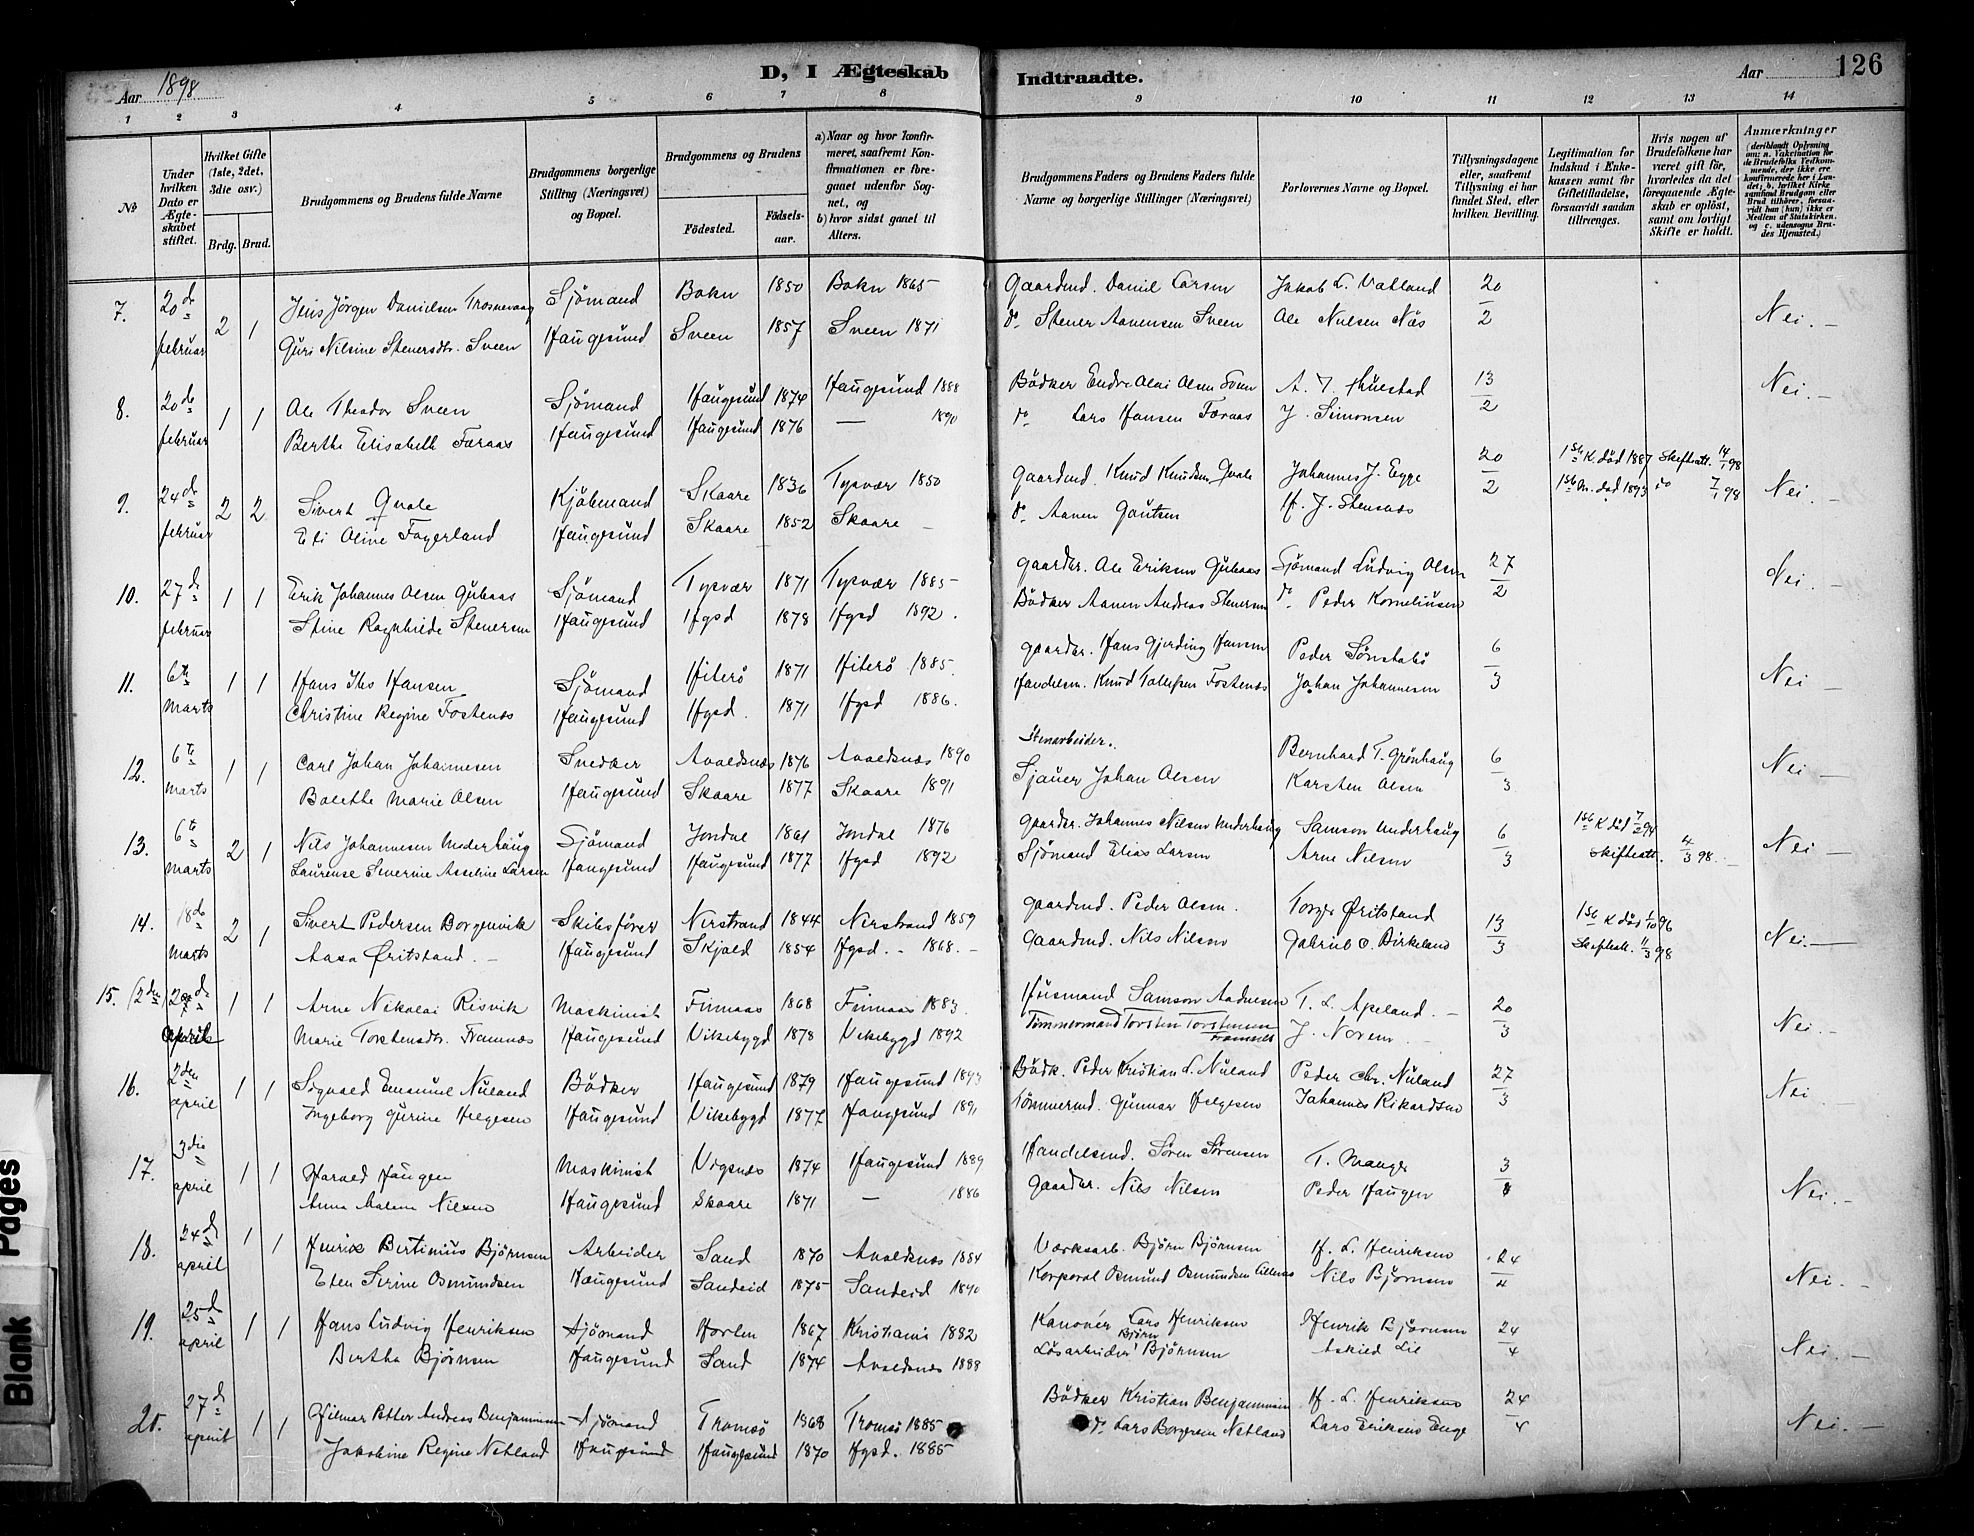 Aar 1898 D, I Ægteskab Indtraadte. Aar 126
1 2 3 4 5 6 7 8 9 10 11 12 13 14
№
Under hvilken Dato er Ægteskabet stiftet.
Hvilket Gifte (1ste, 2det, 3die osv.)
Brdg. Brud.
Brudgommens og Brudens fulde Navne
Brudgommens borgerlige Stilling (Næringsvei) og Bopæl.
Brudgommens og Brudens
Födested. Födselsaar.
a) Naar og hvor konfirmeret, saafremt Konfirmationen er foregaaet udenfor Sognet, og
b) hvor sidst gaaet til Alters.
Brudgommens Faders og Brudens Faders fulde Navne og borgerlige Stillinger (Næringsvei)
Forlovernes Navne og Bopæl.
Tillysningsdagene eller, saafremt Tillysning ei har fundet Sted, efter hvilken Bevilling.
Legitimation for Indskud i Enkekassen samt for Giftetilladelse, forsaavidt saadan tiltrænges.
Hvis nogen af Brudefolkene har været gift för, hvorledes da det foregaaende Ægteskab er oplöst, samt om lovligt Skifte er holdt.
Anmærkninger
7. 20de februar 2 1 Jens Jörgen Danielsen Trosnavaag Sjömand Bokn 1850 Bokn 1865 Gaardmd. Daniel Larsen Jakob L. Vatland 20/2 Nei.
Guri Nilsine Stenersdtr. Sveen Haugesund Sveen 1857 Sveen 1871 do. Stener Aanensen Sveen Ole Nielsen Næs
8. 20de februar 1 1 Ole Theodor Sveen Sjömand Haugesund 1874 Haugesund 1888 Bödker Endre Olai Olsen Sveen 13/2 Nei.
Berthe Elisabeth Faraas Haugesund Haugesund 1876 — 1890 do Lars Hansen Faraas J. Simonsen
9. 24de februar 2 2 Sivert Qvale Kjöbmand Skaare 1836 Tysvær 1850 Gaardmd. Knud Knudsen Qvale Johannes J. Egge 20/2 1ste K. död 1887 Skifteatt. 14/1 98 Nei.
Eli Oline Fagerland Haugesund Skaare 1852 Skaare — do. Aanen Gautsen H. J. Stensnæs 1ste M. död 1893 do 7/1 98
10. 27de februar 1 1 Erik Johannes Olsen Gubaas Sjömand Tysvær 1871 Tysvær 1885 Gaardbr. Ole Eriksen Gubaas Sjömand Ludvig Olsen 27/2 Nei.
Stine Ragnhilde Stenersen Haugesund Hgsd 1878 Hgsd 1892. Bödker Aanen Andreas Stenersen do. Peder Korneliussen
11. 6te Marts 1 1 Hans Ths Hansen Sjömand Hiterö 1871 Hiterö 1885. Gaardbr. Hans Gjerding Hansen Peder Sönstabö 6/3 Nei
Christine Regine Fostenæs Haugesund Hgsd. 1871 Hgsd 1886. Handelsm. Knud Tollefsen Fostenæs Johan Johannesen
12. 6te Marts 1 1 Carl Johan Johannesen Snedker Avaldsnæs 1876 Avaldsnæs 1890 Stenarbeider. Bernhard T. Grönhaug 6/3 Nei
Bolette Marie Olsen Haugesund Skaare 1877 Skaare 1891 Sjauer Johan Olsen Karsten Olsen
13. 6te Marts 2 1 Nils Johannesen Underhaug Sjömand Jondal 1861 Jondal 1876 Gaardbr. Johannes Nilsen Underhaug Samson Underhaug 6/3 1ste K död 7/2 94 Nei
Laurense Severine Asseline Larsen Haugesund Haugesund 1877 Hgsd 1892 Sjömand Elias Larsen Arne Nilsen Skifteatt. 4/3 98.
14. 18de Marts 2 1 Sivert Pedersen Borgenvik Skibsförer Nerstrand 1844 Nerstrand 1859 Gaardmd. Peder Olsen. Torger Øritsland 13/3 1ste K död 1/10 96 Nei.
Aasa Øritsland. Haugesund Skjold 1854 Hgsd. 1868. Gaardmd. Nils Nilsen Gabriel O. Birkeland Skifteatt. 11/3 98
15. (2den april 1 1 Arne Nikolai Risvik Maskinist Finnaas 1868 Finnaas 1883. Husmand Samson Aadnesen T. L. Apeland. 20/3 Nei.
Marie Torstensdtr. Framnæs Haugesund Vikebygd 1878 Vikebygd 1892 Tömmermand Torsten Torstensen Framnes J. Noren
16. 2den april 1 1 Sigvald Emanuel Nuland Bödker Haugesund 1879 Haugesund 1893 Bödk. Peder Kristian L. Nuland Peder Chr. Nuland 27/3 Nei
Ingeborg Gurine Helgesen Haugesund Vikebygd 1877 Haugesund 1891 Tömmermd. Gunnar Helgesen Johannes Rikardsen
17. 3die april 1 1 Harald Haugen Maskinist Vigsnæs 1874 Haugesund 1889 Handelsmd. Sören Sörensen T. Mauger 3/4 Nei.
Anna Malene Nilsen Haugesund Skaare 1871 — 1886 Gaardbr. Nils Nilsen Peder Haugen
18. 24de april 1 1 Henrik Bertinius Björnsen Arbeider Sand 1870 Avaldsnæs 1884 Værksarb. Björn Björnsen H. L. Henriksen 24/4 Nei.
Elen Serine Osmundsen Haugesund Sandeid 1875 Sandeid 1890 Korporal Osmund Osmundsen Nils Björnsen
19. 25de april 1 1 Hans Ludvig Henriksen Sjömand Horten 1867 Kristiania 1882 Kanonér Lars Henriksen Henrik Björnsen 24/4 Nei.
Bertha Björnsen Haugesund Sand 1874 Avaldsnes 1888 Lösarbeider Björn Björnsen Askild Lie
20. 27de april 1 1 Hilmar Petter Andreas Benjaminsen Sjömand Tromsö 1868 Tromsö 1885 Bödker Kristian Benjaminsen H. L. Henriksen 24/4 Nei.
Jakobine Regine Netland Haugesund Haugesund 1870 Hgsd. 1885 do. Lars Borgersen Netland Lars Eriksen Enge
Blank Pages